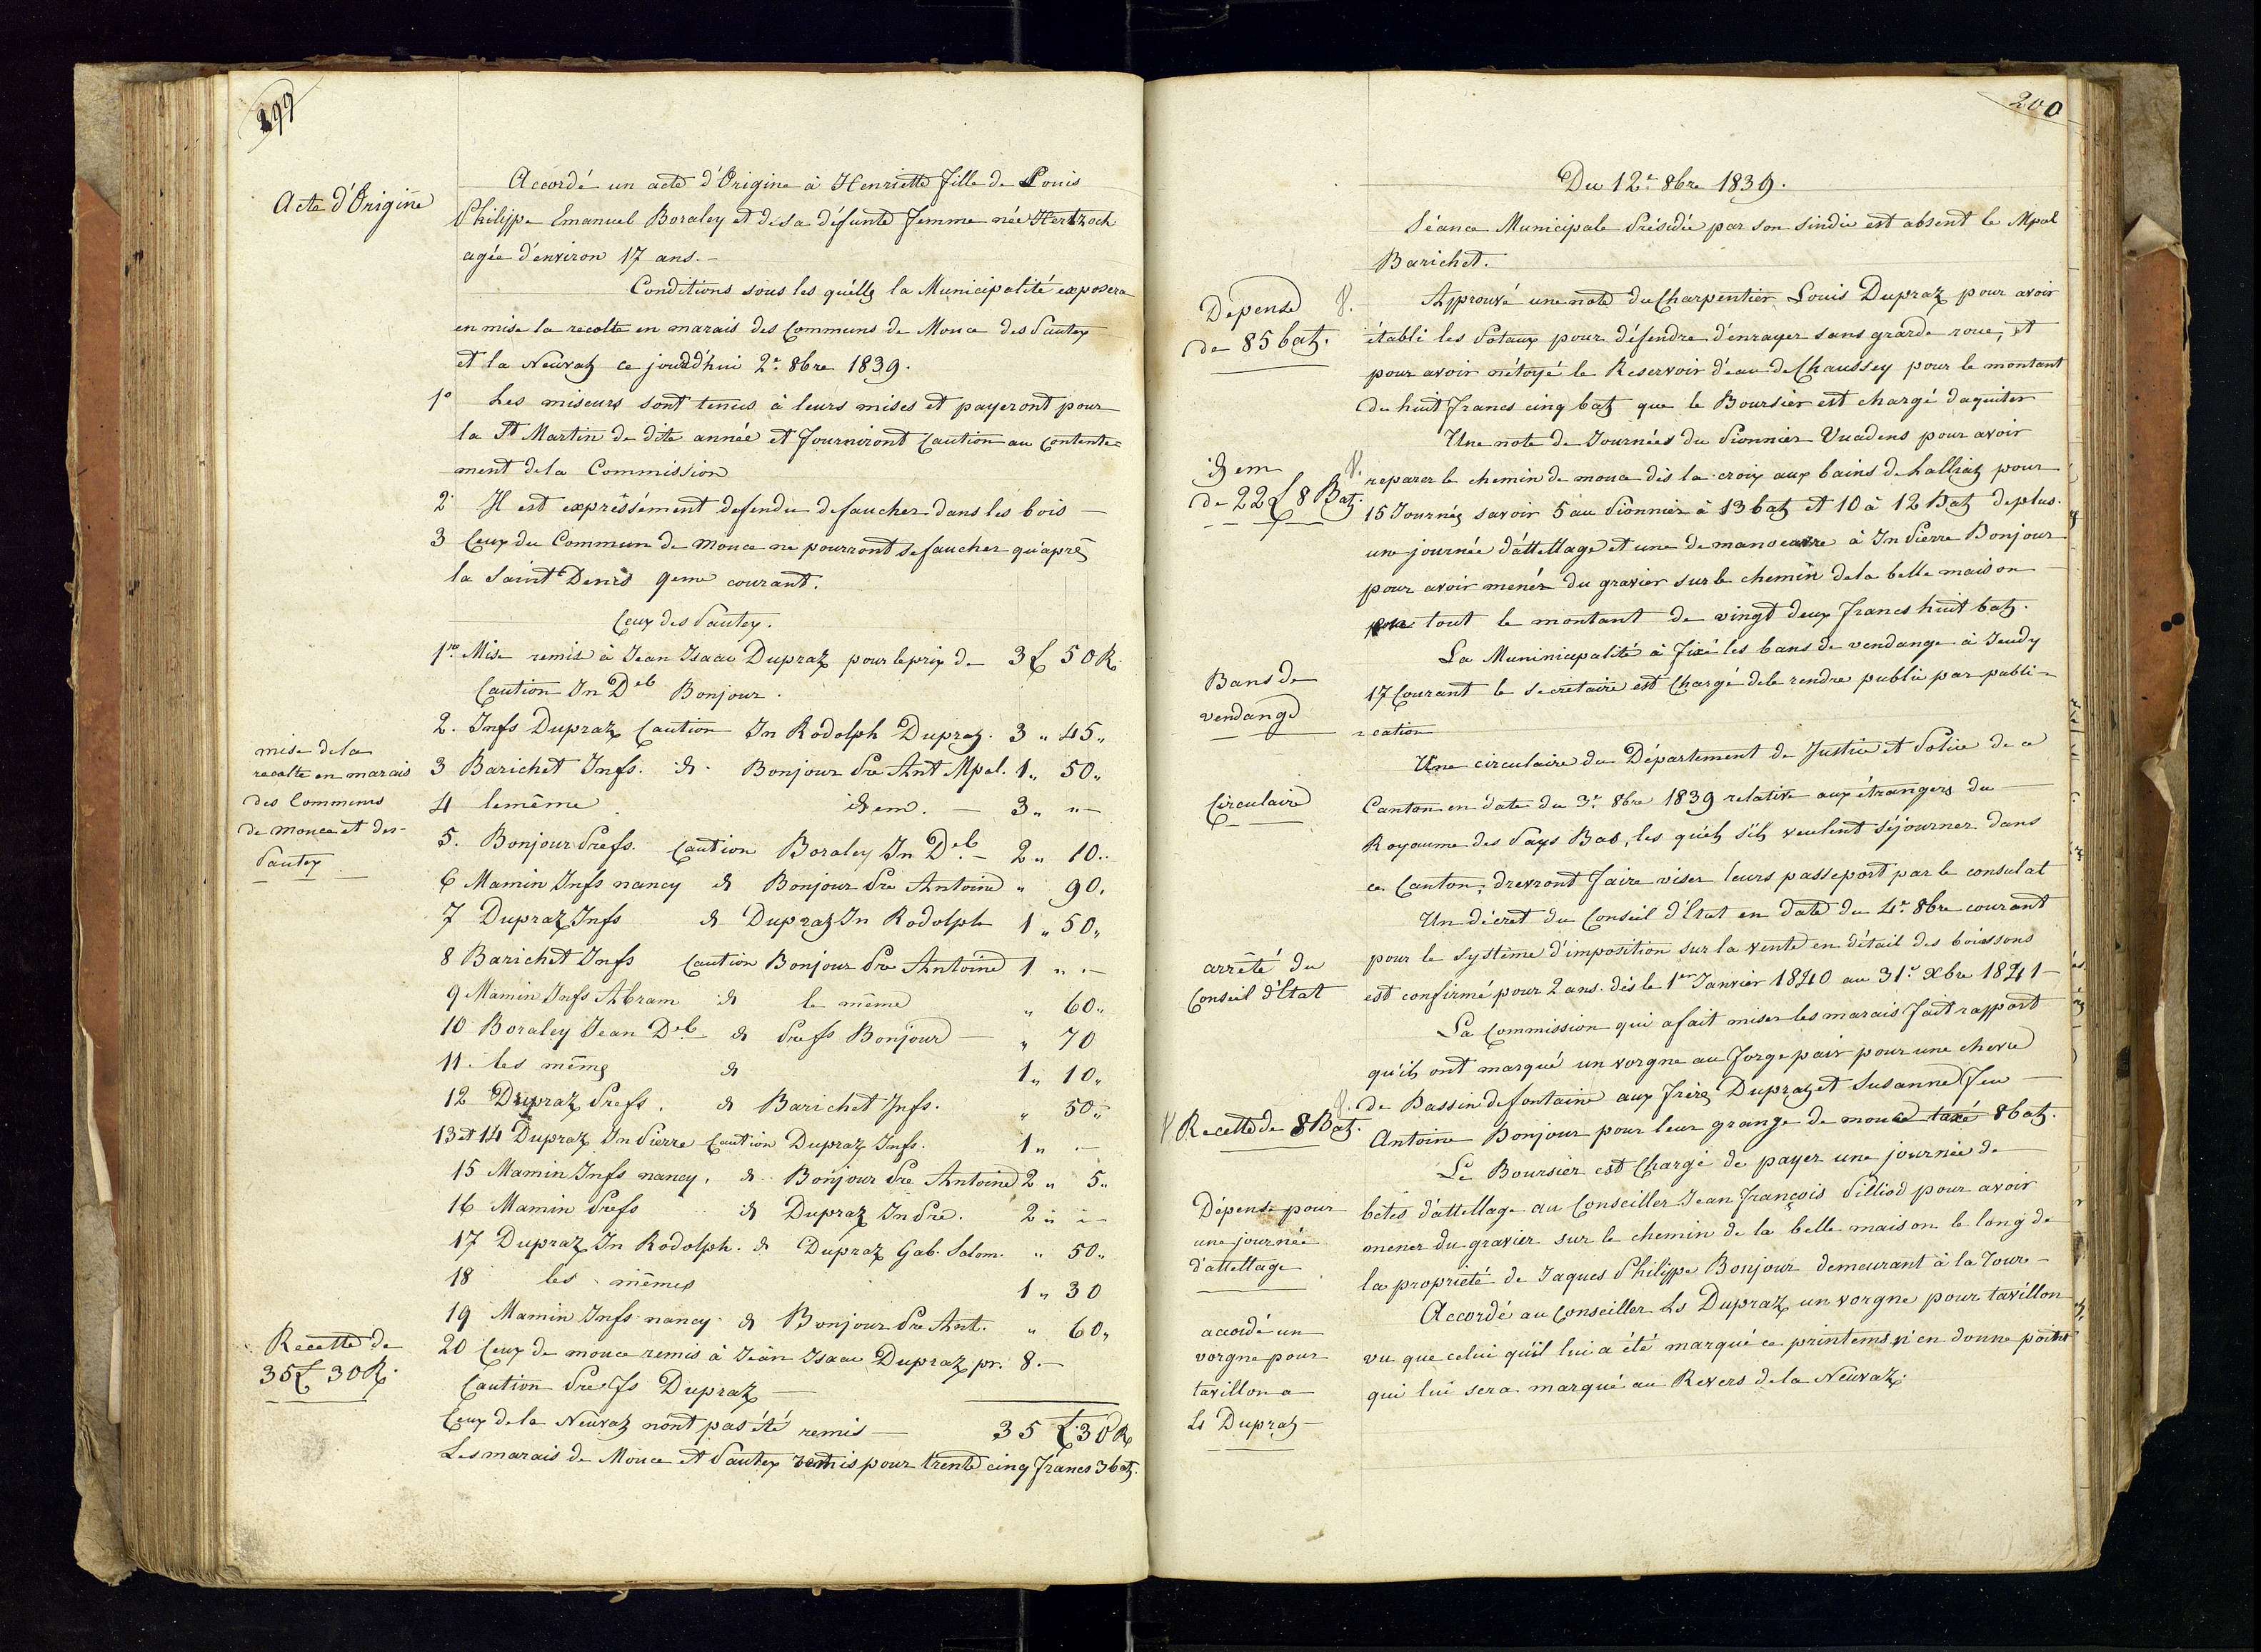 199
Acte d'Origine
Accordé un acte d'Origine à Henriette fille de Louis
Philippe Emanuel Boraley et de sa défunte femme née Hertzoch
agée d'environ 17 ans.-
Conditions sous les quélls la Municipalité exposera
en mise la recolte en marais des Communs de Mouce des Pautex
et la Neuvaz ce jourd'hui 2e 8bre 1839.
1o Les miseurs sont tenus à leurs mises et payeront pour
la St Martin de dite année et fourniront Caution au Contente=
ment de la Commission
2 Il est expressément defendu de faucher dans les bois —
3 Ceux du Commun de Mouce ne pourront se faucher qu'aprês
la Saint Denis 9eme courant.
Ceux des Pautex.
1re Mise remise à Jean Isaac Dupraz pour le prix de 3 £ 50 R.
Caution Jn Del Bonjour.
2. Jnfs Dupraz Caution Jn Rodolph Dupraz. 3 „ 45„
mise de la
recolte en marais
des Communs
de Mouce et des
Pautex
3 Barichet Jnfs. id. Bonjour Pre Ant Mpal. 1„ 50„
4 lemême idem. — 3„ „—
5. Bonjour Prefs. Caution Boraley Jn Del — 2„ 10„
6 Mamin Jnfs nancy id Bonjour Pre Antoine „ 90„
7 Dupraz Jnfs id Dupraz Jn Rodolph 1 „ 50„
8 Barichet Jnfs Caution Bonjour Pre Antoine 1 „ „—
9 Mamin Jnfs Abram id le même „ 60„
10 Boraley Jean Del id Prefs Bonjour — „ 70
11. les mêms id 1„ 10„
12 Dupraz Prefs. id Barichet Jnfs. „ 50„
13 et 14 Dupraz Jn Pierre Caution Dupraz Jnfs. 1„ „—
15 Mamin Jnfs nancy. id Bonjour Pre Antoine 2 „ 5„
16 Mamin Prefs id Dupraz Jn Pre. 2 „ „—
17 Dupraz Jn Rodolph. id Dupraz Gab. Salom. „ 50„
18 les mêmes 1 „ 30
19 Mamin Jnfs nancy id Bonjour Pre Ant. „ 60„
20 Ceux de mouce remis à Jean Isaac Dupraz pr. 8.—
Caution Pre fs Dupraz —
Recette de
35£ 30R.
Ceux de la Neuvaz nont pas été remis — 35 £ 30 R
Les marais de Mouce et Pautex remis pour trente cinq francs 3 batz.
200
Du 12e 8bre 1839.
Séance Municipale Présidée par son sindic est absent le Mpal
Barichet.
Dépense
de 85 batz.
Approuvé une note du Charpentier Louis Dupraz pour avoir
établi les Potaux pour défendre d'enrayer sans grarde roue, et
pour avoir nétoyé le Reservoir d'eau de Chaussey pour le montant
de huit francs cinq batz que le Boursier est chargé daquiter
idem
de 22£ 8 Batz.
Une note de Journées du Pionnier Vuadens pour avoir
reparer le chemin de mouce dès la croix aux bains de Lalliaz pour
15 Journés savoir 5 au Pionnier à 13 batz et 10 à 12 Batz de plus.
une journée d'áttellage et une de manoeuvre à Jn Pierre Bonjour
pour avoir menér du gravier sur le chemin de la belle maison
pour tout le montant de vingt deux francs huit batz.
Bans de
vendange
La Muninicipalité à fixé les bans de vendange à Jeudy
17 Courant le secrétaire est Chargé de le rendre public par publi-
-cation
Circulaire
Une circulaire du Département de Justice et Police de ce
Canton en date du 3e 8bre 1839 relative aux étrangers du
Royaume des Pays Bas, les quels s'ils veulent séjourner dans
ce Canton, drevront faire viser leurs passeport par le consulat
arrêté du
Conseil d'État
Un décret du Conseil d'État en date du 4e 8bre courant
pour le Système d'imposition sur la vente en détail des boissons
est confirmé pour 2 ans. dès le 1er Janvier 1840 au 31e Xbre 1841—
La Commission qui a fait miser les marais fait rapport
qu'ils ont marqué un vorgne au forge pair pour une chevre
Recette de 8 Batz.
de Bassin de fontaine aux frères Dupraz et Susanne feu
Antoine Bonjour pour leur grange de mouce taxé 8 batz.
Dépense pour
une journée
d'attellage
Le Boursier est Chargé de payer une journée de
bêtes d'attellage au Conseiller Jean François Pilliod pour avoir
mener du gravier sur le chemin de la belle maison le long de
la propriété de Jaques Philippe Bonjour demeurant à la Tour—
accordé un
vorgne pour
tavillon a
Ls Dupraz—
Accordé au Conseiller Ls Dupraz un vorgne pour tavillon
vu que celui qu'il lui a été marqué ce printems n'en donne point
qui lui sera marqué au Revers de la Neuvaz.